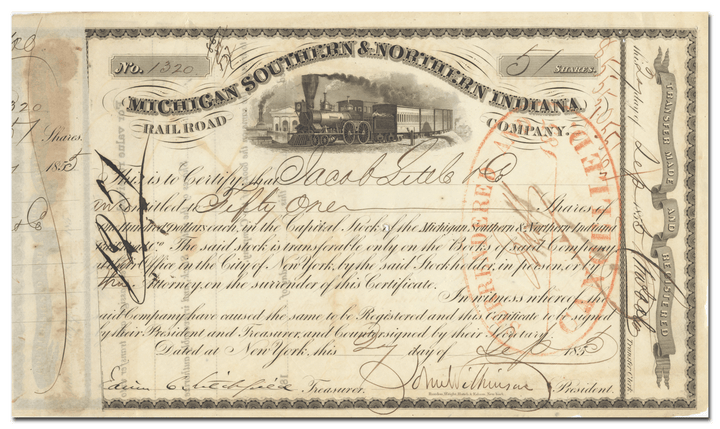 No. 1320
51 SHARES.
MICHIGAN SOUTHERN & NORTHERN INDIANA
RAIL ROAD COMPANY.
This is to Certify that Jacob Little & Co
entitled to Fifty One Shares
One Hundred Dollars each, in the Capital Stock of the Michigan Southern & Northern Indiana
Rail Road Co. The said stock is transferable only on the Books of said Company
at their Office in the City of New York, by the said Stockholder, in person, or by
Attorney, on the surrender of this Certificate.
In witness whereof the
said Company have caused the same to be Registered and this Certificate to be signed
by their President and Treasurer, and Countersigned by their Secretary
Dated at New York, this day of Sep 1855
Treasurer. John Wilkinson President.
TRANSFER MADE AND REGISTERED
Transfer Clerk
SURRENDERED AND CANCELLED
Shares.
1855